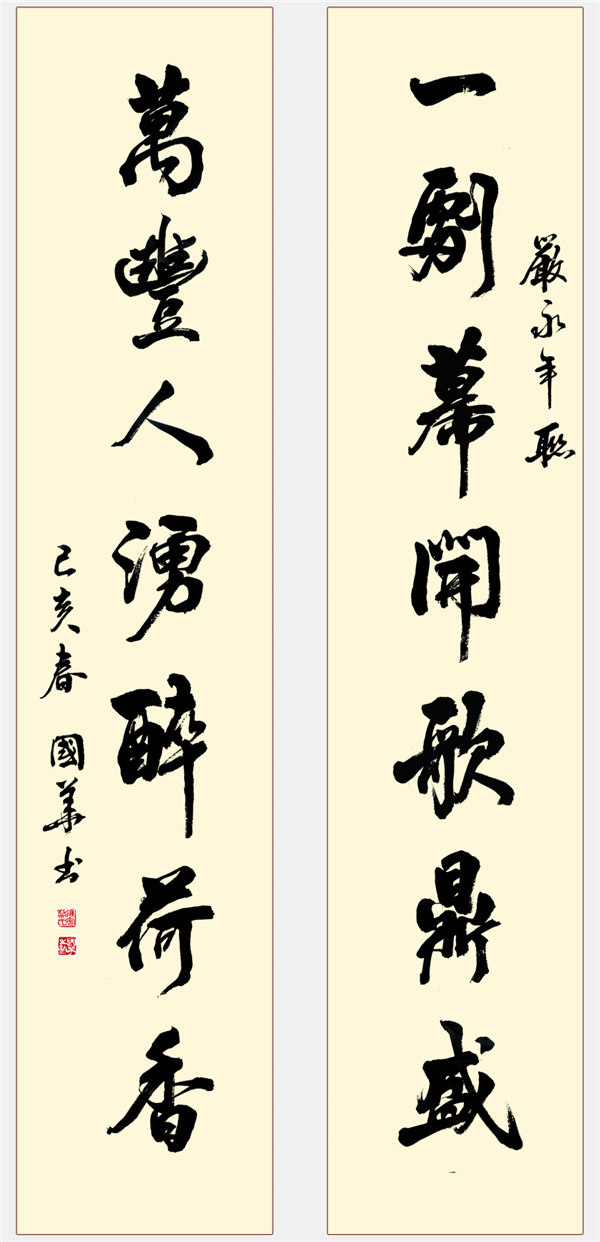 一劇幕開歌鼎盛
嚴永年聯
萬豐人湧醉荷香
己亥春 國華书